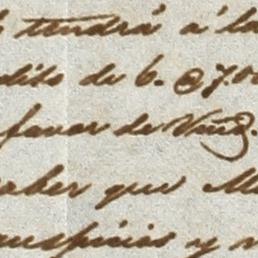 tendrá á la
dito de 6. @ 7.00
favor de Vmd.
saber que M
auspicios y